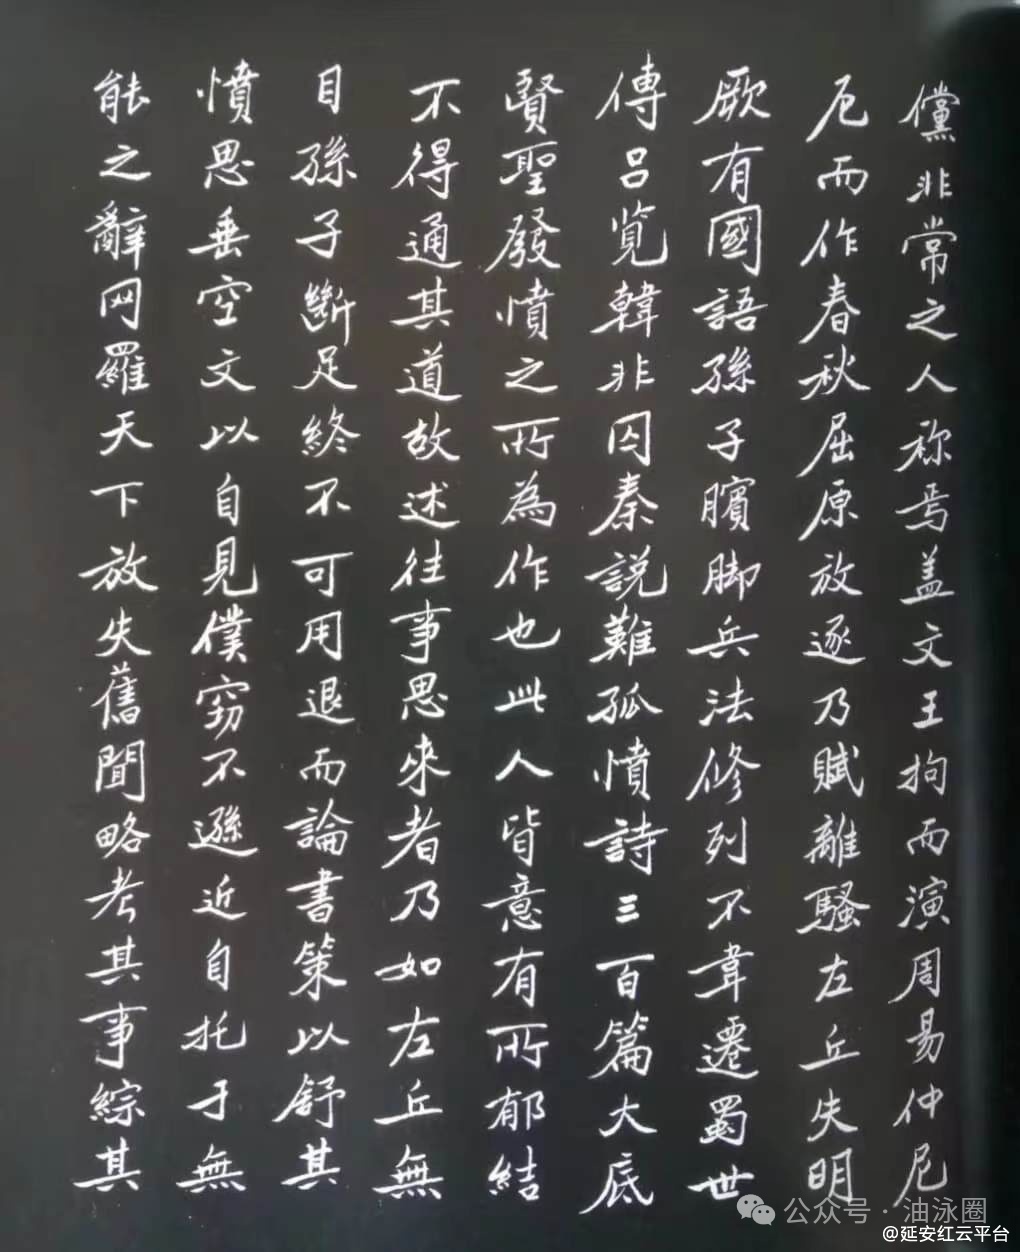 儻非常之人称焉盖文王拘而演周易仲尼
厄而作春秋屈原放逐乃賦離騷左丘失明
厥有國語孫子臏脚兵法修列不韋遷蜀世
傳吕覧韓非囚秦説難孤憤詩三百篇大底
賢聖發憤之所為作也此人皆意有所郁結
不得通其道故述往事思來者乃如左丘無
目孫子斷足終不可用退而論書策以舒其
憤思垂空文以自見僕窃不遜近自托于無
能之辭网羅天下放失舊聞略考其事綜其
公众号·油泳圈
@延安红云平台